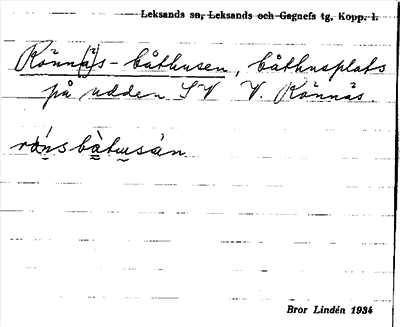 Leksands sn, Leksands och Gagnefs tg, Kopp. l.
Rönn(ä)s-båthusen, båthusplats
på udden SV V. Rönnäs.
Bror Lindén 1934